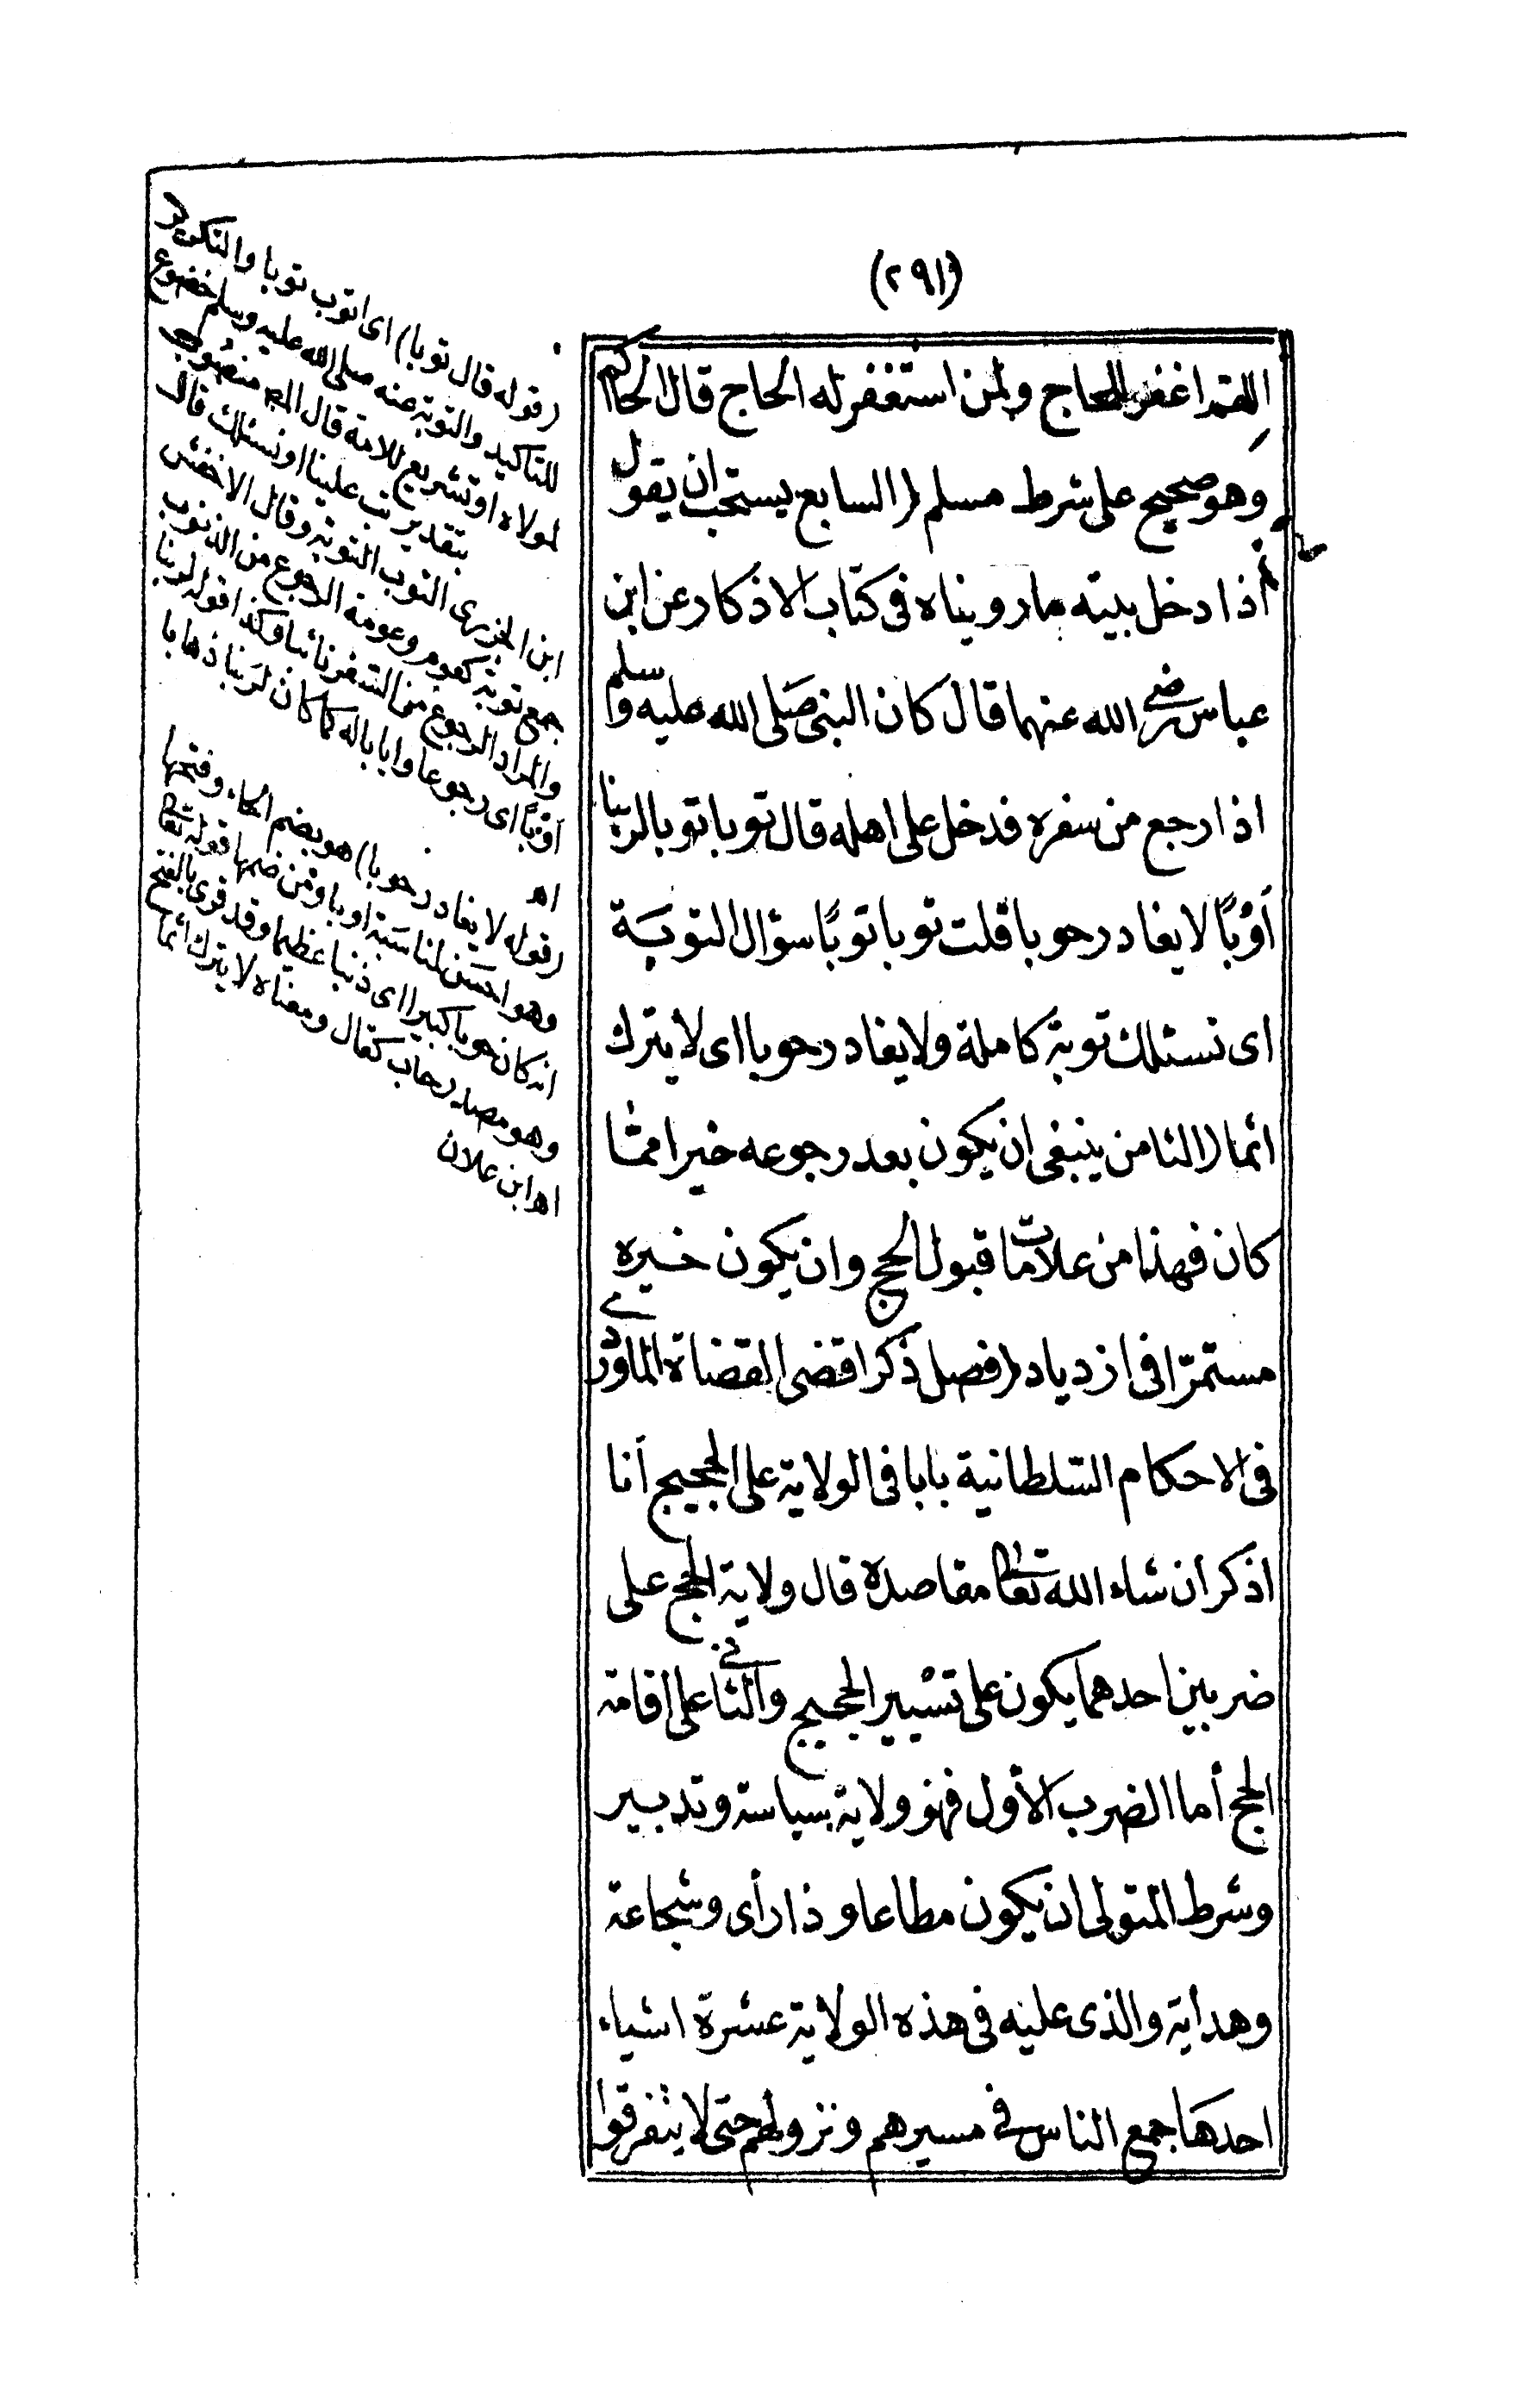 (٢٩١)
اللهم اغفر للحاج ولمن استغفر له الحاج قال الحاكم
وهو صحيح على شرط مسلم (السابع يستحب ان يقول
اذا دخل بيته ما رويناه فى كتاب الاذكار عن ابن
عباس رضي الله عنهما قال كان النبى صَلى الله عليه وسلم
اذا رجع من سفره فدخل على اهله قال توبا توبا لربنا
أَوْبًا لا يغادر حوبا قلت توبا توبًا سؤال التوبَة
اى نسئلك توبة كاملة ولا يغادر حوبا اى لا يترك
اثما (الثامن ينبغى ان يكون بعد رجوعه خيرا ممّا
كان فهذا من علامات قبول الحج وان يكون خيره
مستمرّا فى ازدياد (فصل ذكر اقضى القضاة الماوردي
فى الاحكام السّلطانية بابا فى الولاية على الحجيج أنا
اذكر أن شاء الله تعالى مقاصده قال ولاية الحج على
ضربين احدهما يكون على تسيير الحجيج والثاني على اقامة
الحج أما الضرب الأول فهو ولاية سياسة وتدبير
وشرط المتولى ان يكون مطاعا وذا رأى وشجاعة
وهداية والذى عليه فى هذه الولاية عشرة اشياء
احدها جمع الناس في مسيرهم ونزولهم حتى لا يتفرقوا
(قوله قال توبا) اى اتوب توبا والتكرير
للتاكيد والتوبة عنه صلى الله عليه وسلم خضوع
لمولاه او تشريع للامة قال المص منصوب
بتقدير تب علينا او نسئلك قال
ابن الجزرى التوب التوبة وقال الاخفش
جمع توبة كعوم وعومة الرجوع من الذنوب
والمراد الرجوع من السّفر تائبا وكذا قوله لربنا
أوبًا اى رجوعا وايابا له كما كان لربنا ذهابا
اهـ
(قوله لا يغادر حوبا) هو بضم الحاء وفتحها
وهو احسَن لمناسَبة اوبا ومن ضمها قوله تعالى
انه كان حوبا كبيرا اى ذنبا عظيما وقد قرئ بالفتح
وهو مصدر حاب كقال ومعناه لا يترك اثما
اهـ ابن علان